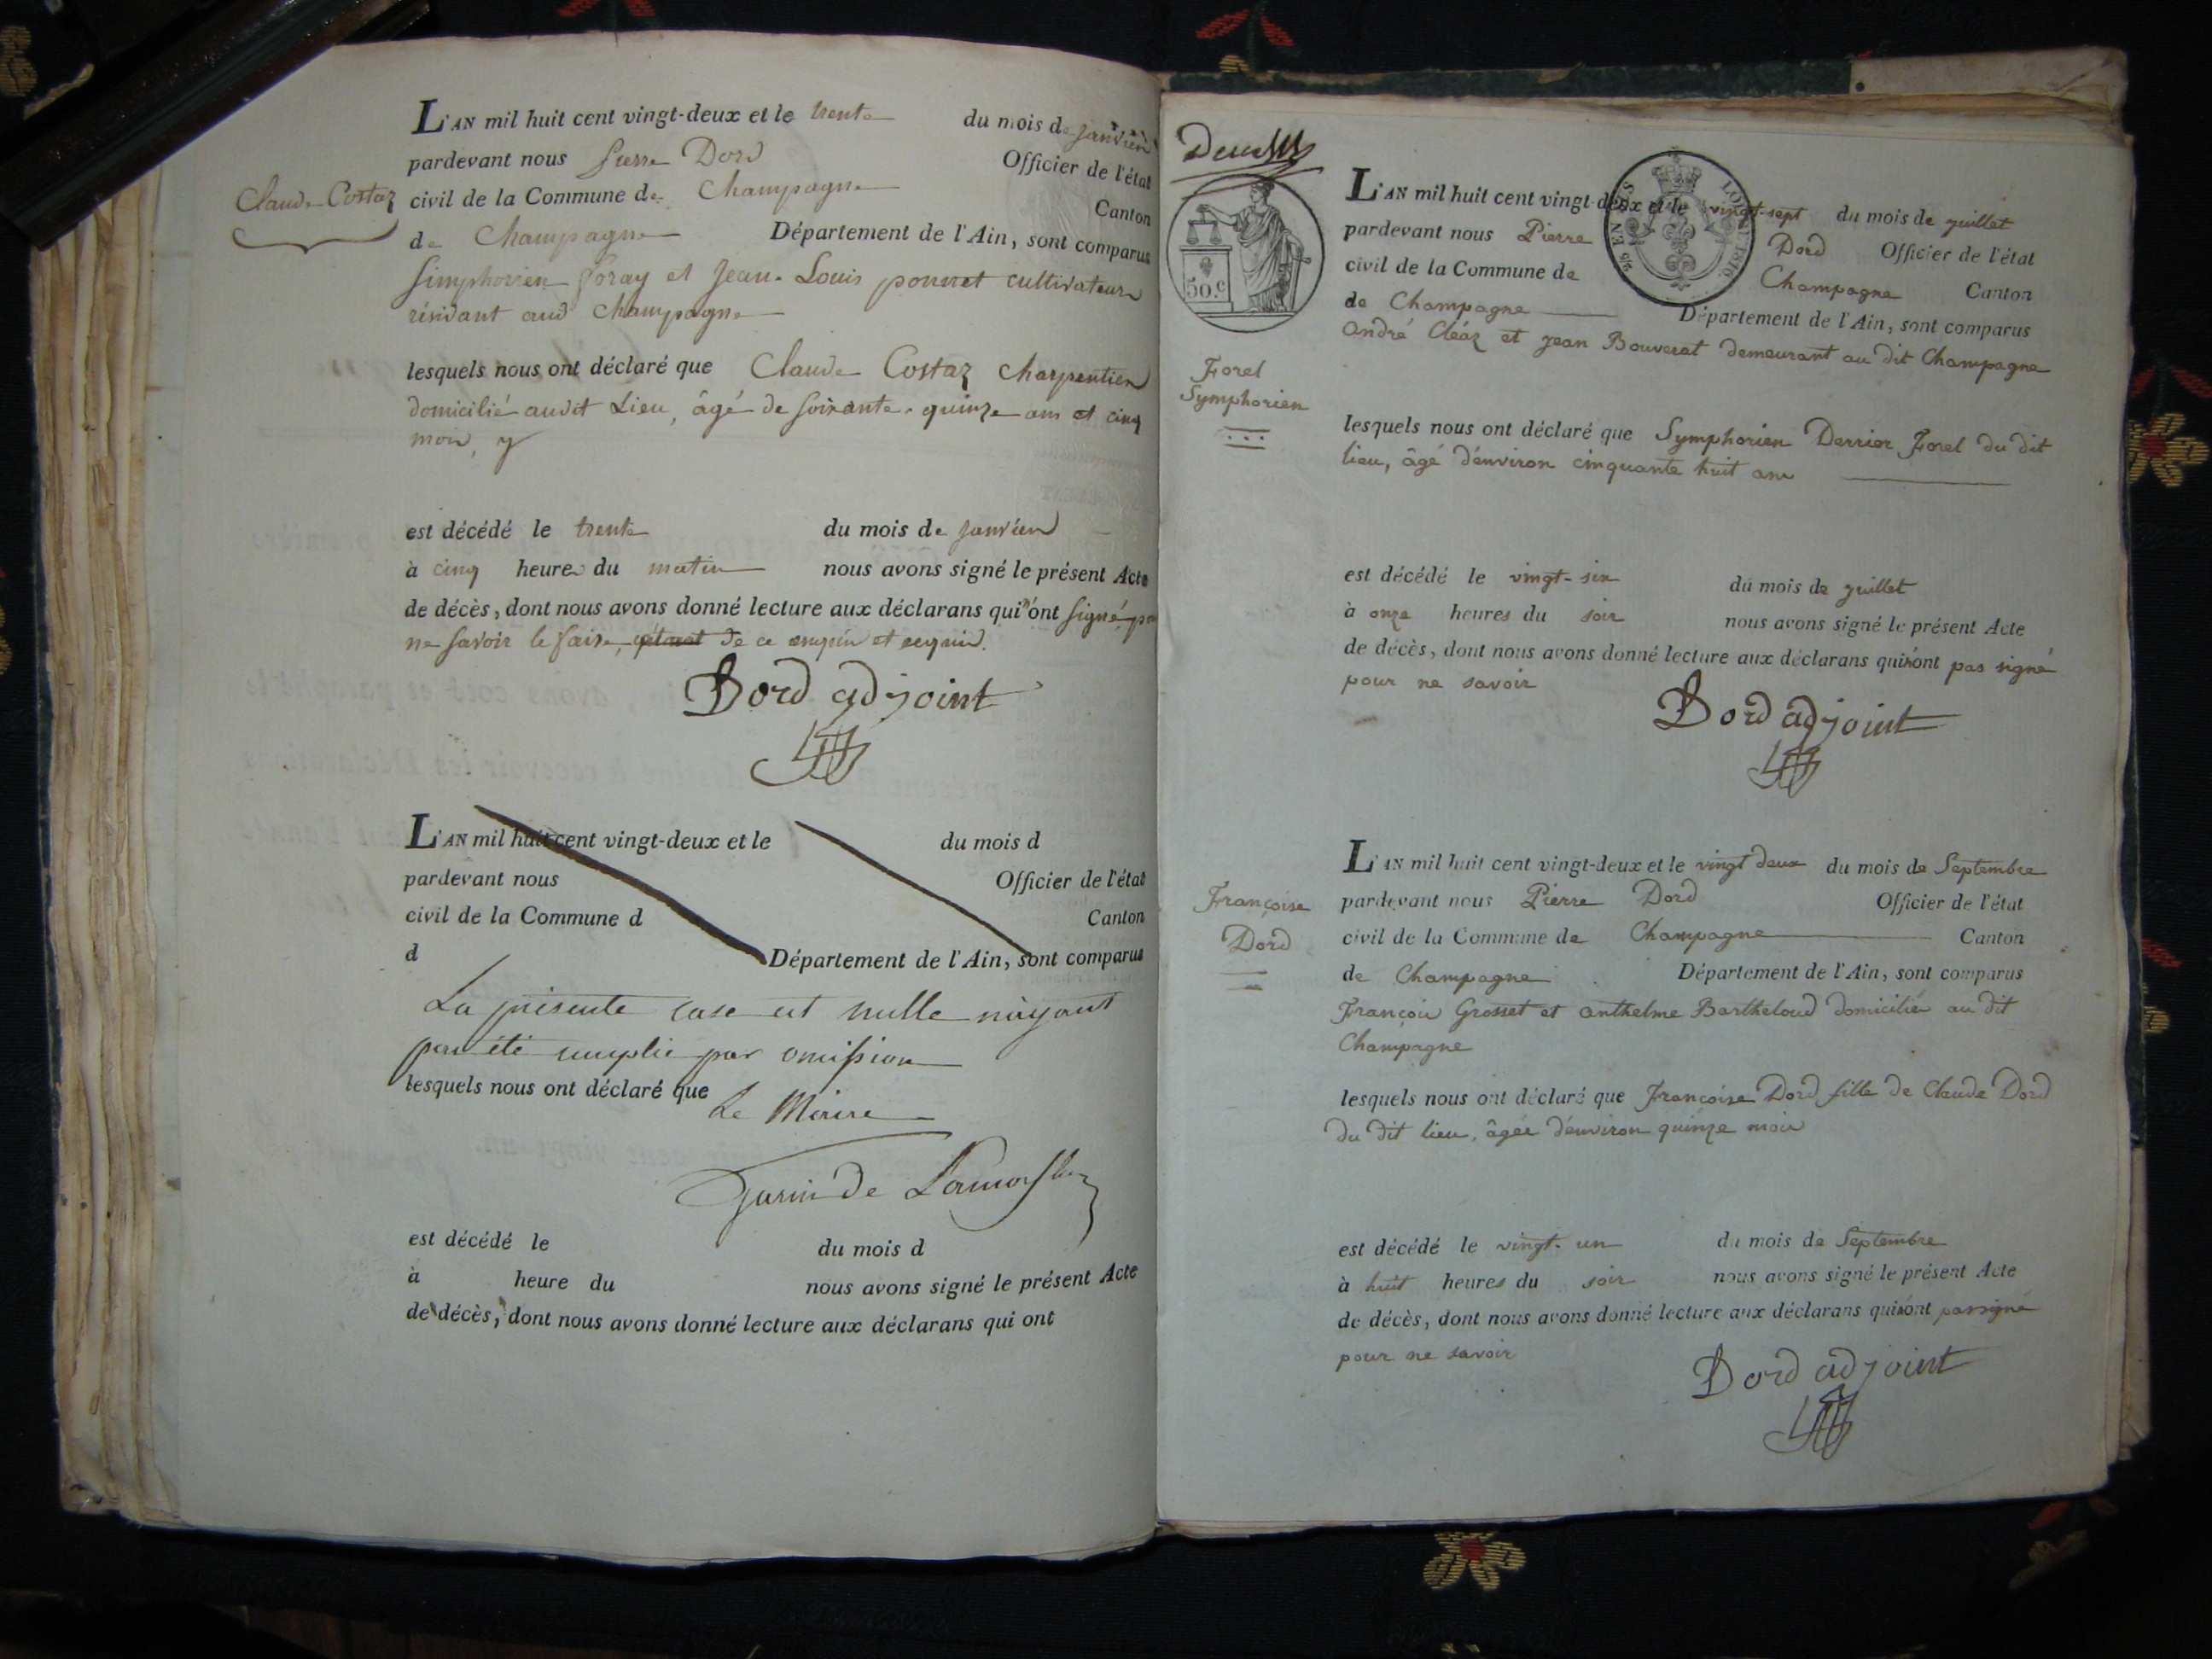 L'AN mil huit cent vingt-deux et le trente du mois de janvier
pardevant nous Pierre Dord Officier de l'état
Claude Costaz
civil de la Commune de Champagne Canton
de Champagne Département de l'Ain, sont comparus
Simphorien Foray et Jean-Louis ponnet cultivateurs
résidant aud Champagne
lesquels nous ont déclaré que Claude Costaz Charpentier
domicilié audit Lieu, âgé de soixante-quinze ans et cinq
mois, y
est décédé le trente du mois de janvier
à cinq heures du matin nous avons signé le présent Acte
de décès, dont nous avons donné lecture aux déclarans qui n'ont signé
ne savoir le faire, de ce enquis et requis.
Dord adjoint
L'AN mil huit cent vingt-deux et le du mois d
pardevant nous Officier de l'état
civil de la Commune d Canton
d Département de l'Ain, sont comparus
La présente case est nulle n'ayant
pas été remplie par omission
lesquels nous ont déclaré que
Le Maire
de
est décédé le du mois d
à heure du nous avons signé le présent Acte
de décès, dont nous avons donné lecture aux déclarans qui ont
50.c
L'AN mil huit cent vingt-deux et le vingt-sept du mois de juillet
pardevant nous Pierre Dord Officier de l'état
civil de la Commune de Champagne Canton
de Champagne Département de l'Ain, sont comparus
André Cléaz et jean Bouverat demeurant au dit Champagne
Forel
Symphorien
lesquels nous ont déclaré que Symphorien Derrier Forel du dit
lieu, âgé d'environ cinquante huit ans
est décédé le vingt-six du mois de juillet
à onze heures du soir nous avons signé le présent Acte
de décès, dont nous avons donné lecture aux déclarans qui n'ont pas signé
pour ne savoir
Dord adjoint
L'AN mil huit cent vingt-deux et le vingt deux du mois de Septembre
Françoise
Dord
pardevant nous Pierre Dord Officier de l'état
civil de la Commune de Champagne Canton
de Champagne Département de l'Ain, sont comparus
François Grosset et anthelme Bartheloud domiciliés au dit
Champagne
lesquels nous ont déclaré que Françoise Dord fille de Claude Dord
du dit lieu, âgée d'environ quinze mois
est décédé le vingt-un du mois de Septembre
à huit heures du soir nous avons signé le présent Acte
de décès, dont nous avons donné lecture aux déclarans qui n'ont pas signé
pour ne savoir
Dord adjoint